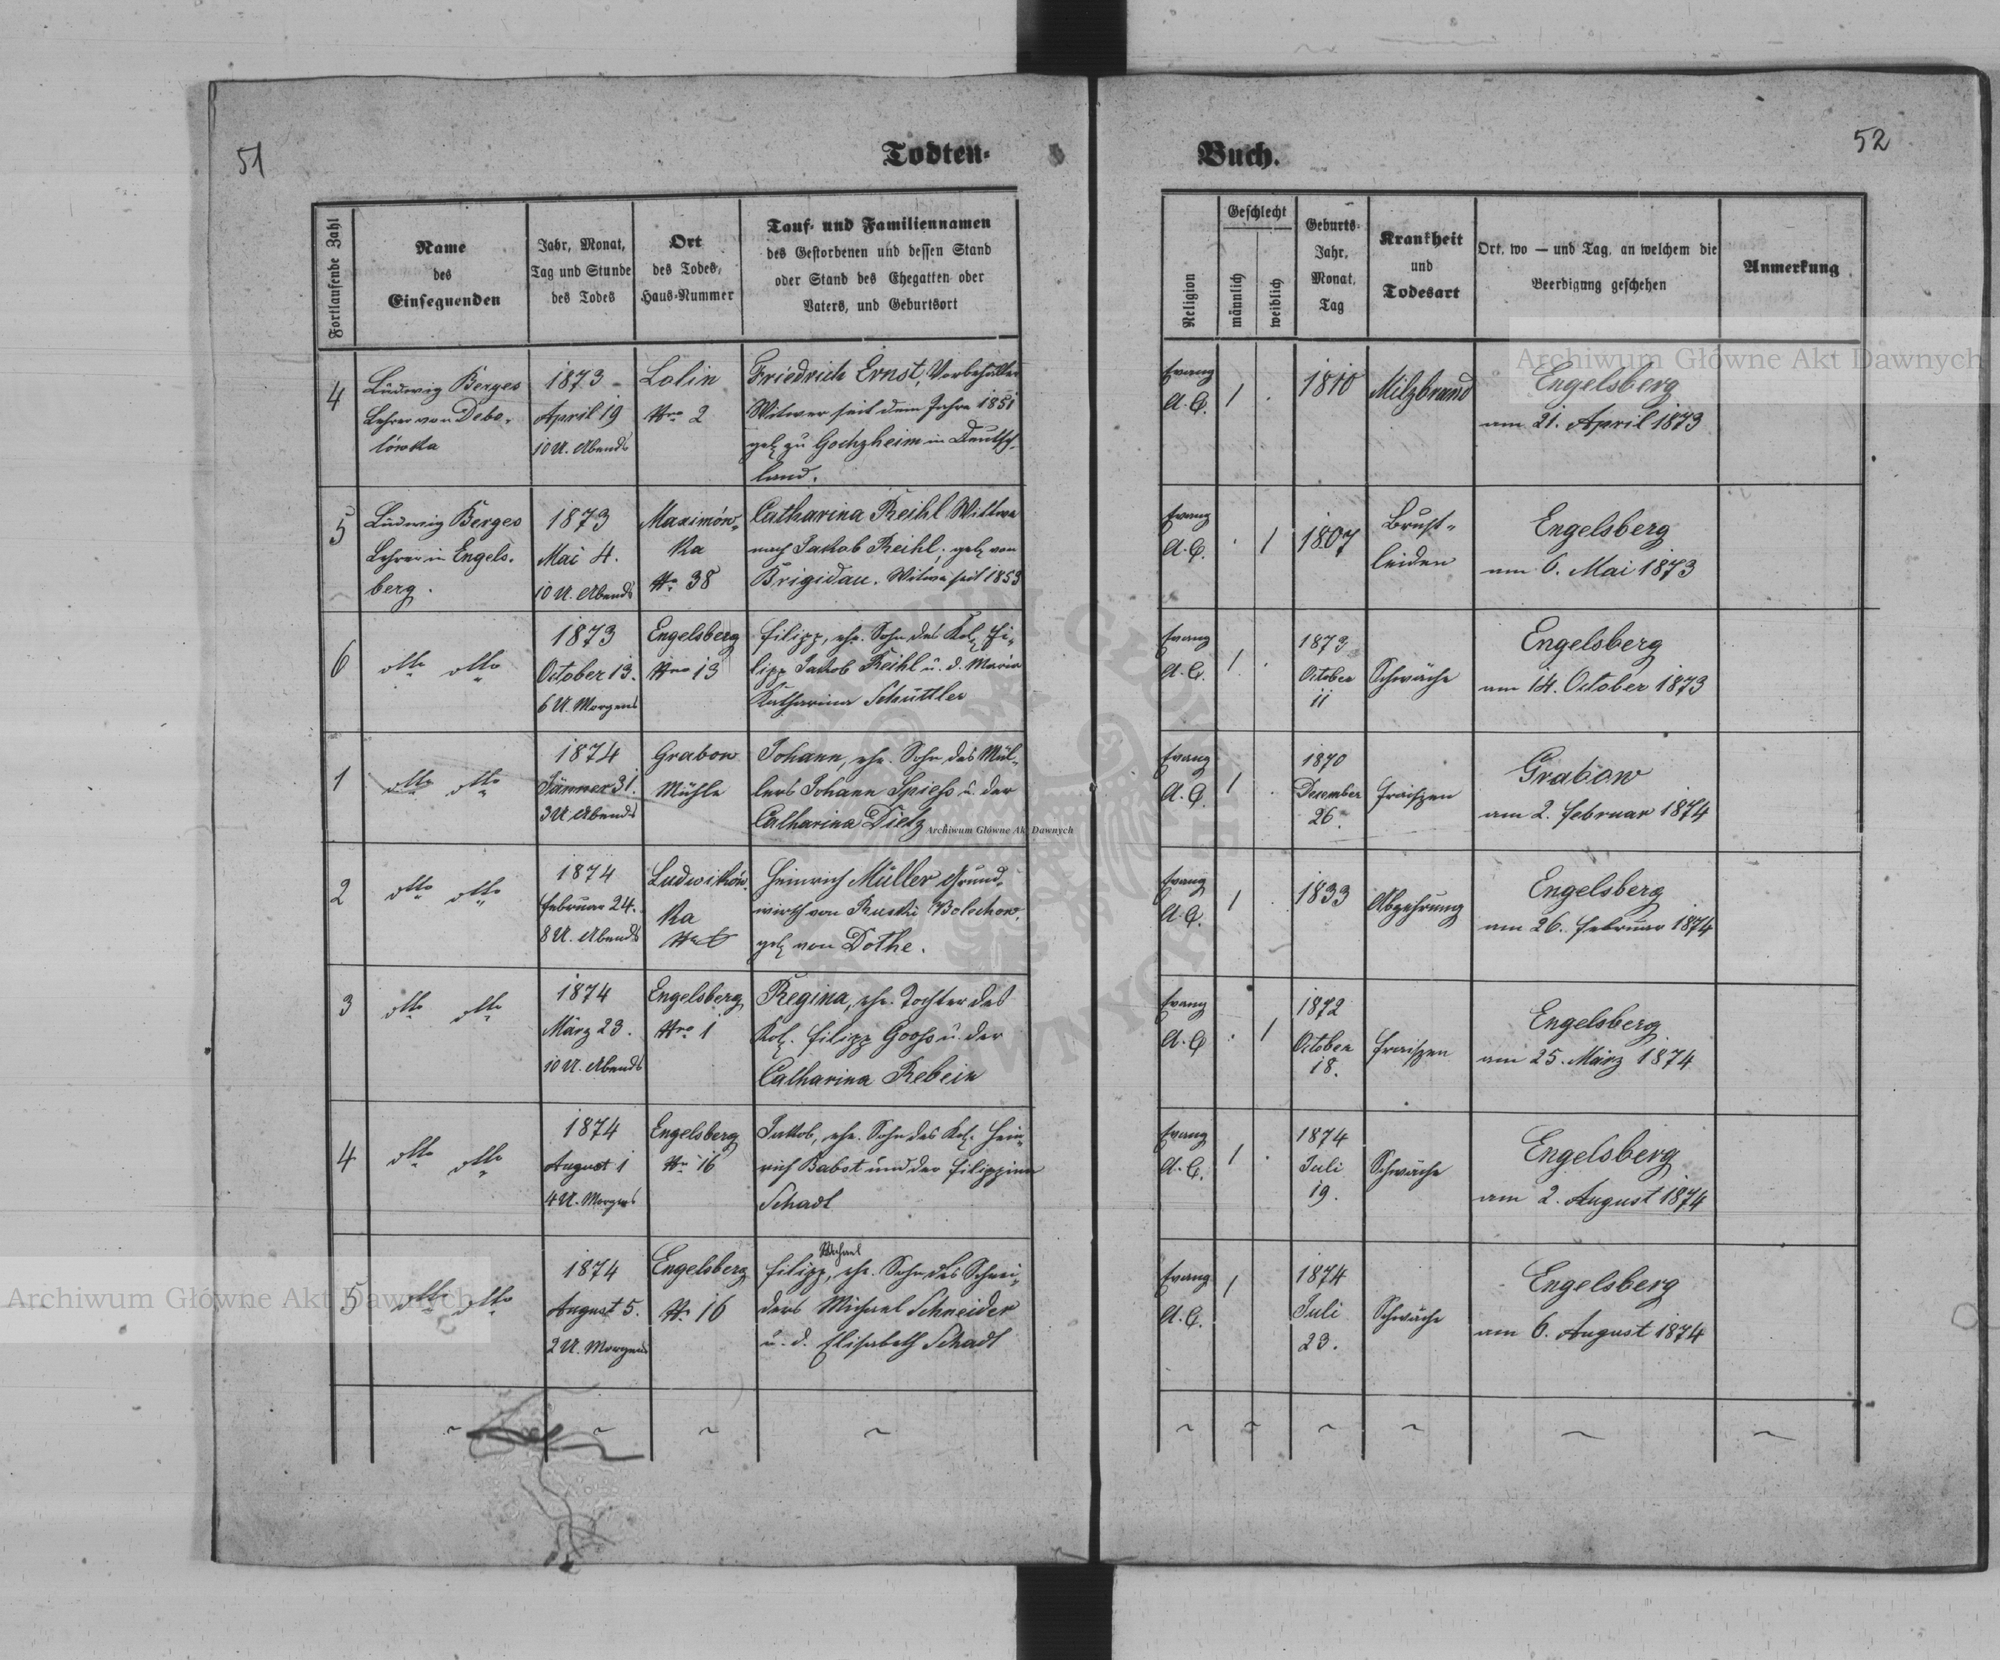 51
52
Todten-
Buch.
Fortlaufende Zahl
Name
des
Einsegnenden
Jahr, Monat,
Tag und Stunde
des Todes
Ort
des Todes,
Haus-Nummer
Tauf- und Familiennamen
des Gestorbenen und dessen Stand
oder Stand des Ehegatten oder
Vaters, und Geburtsort
Religion
Geschlecht
männlich
weiblich
Geburts-
Jahr,
Monat,
Tag
Krankheit
und
Todesart
Ort, wo — und Tag, an welchem die
Beerdigung geschehen
Anmerkung
4
Ludwig Berges
Lehrer von Debo-
lówka
1873
April 19
10 U. Abends
Lolin
Nro 2
Friedrich Ernst, Vorbehälter
Witwer seit dem Jahre 1851
geb zu Gochzheim in Deutsch-
land.
Evang
A. C.
1 .
1810
Milzbrand
Engelsberg
am 21. April 1873
5
Ludwig Berges
Lehrer in Engels-
berg.
1873
Mai 4.
10 U. Abends
Maximów-
ka
Nr. 38
Catharina Reihl Wittwe
nach Jakob Reihl; geb von
Brigidau. Witwe seit 1853
Evang
A. C.
. 1
1807
Brust-
leiden
Engelsberg
am 6. Mai 1873
6
dtto dtto
1873
October 13.
6 U. Morgens
Engelsberg
Nro 13
Filipp, ehe. Sohn des Kol. Fi-
lipp Jakob Reihl u. d. Maria
Katharina Schüttler
Evang
A. C.
1 .
1873
October
11
Schwäche
Engelsberg
am 14. October 1873
1
dtto dtto
1874
Jänner 31.
3 U Abends
Grabow
Mühle
Johann, ehe. Sohn des Mül-
lers Johann Spiess u. der
Catharina Dietz
Evang
A. C.
1 .
1870
Dezember
26.
Fraiszen
Grabow
am 2. Februar 1874
2
dtto dtto
1874
Februar 24.
8 U. Abends
Ludwików-
ka
Heinrich Müller Grund-
wirth von Ruski Bolechow,
geb von Dothe.
Evang
A. C.
1 .
1833
Abzehrung
Engelsberg
am 26. Februar 1874
3
dtto dtto
1874
März 23.
10 U. Abends
Engelsberg
Nro 1
Regina, ehe. Tochter des
Kol. Filipp Gooss u. der
Catharina Rebein
Evang
A. C
. 1
1872
October
18.
Fraiszen
Engelsberg
am 25. März 1874
4
dtto dtto
1874
August 1
4 U. Morgens
Engelsberg
Nr. 16
Jakob, ehe. Sohn des Kol. Hein-
rich Babst und der Filippina
Schadl
Evang
A. C.
1 .
1874
Juli
19.
Schwäche
Engelsberg
am 2. August 1874
5
dtto dtto
1874
August 5.
2 U. Morgens
Engelsberg
Nr. 16
Michael
Filipp, ehe. Sohn des Schnei-
ders Michael Schneider
u. d. Elisabeth Schadl
Evang
A. C.
1
1874
Juli
23.
Schwäche
Engelsberg
am 6. August 1874
Archiwum Główne Akt Dawnych
Archiwum Główne Akt Dawnych
Archiwum Główne Akt Dawnych